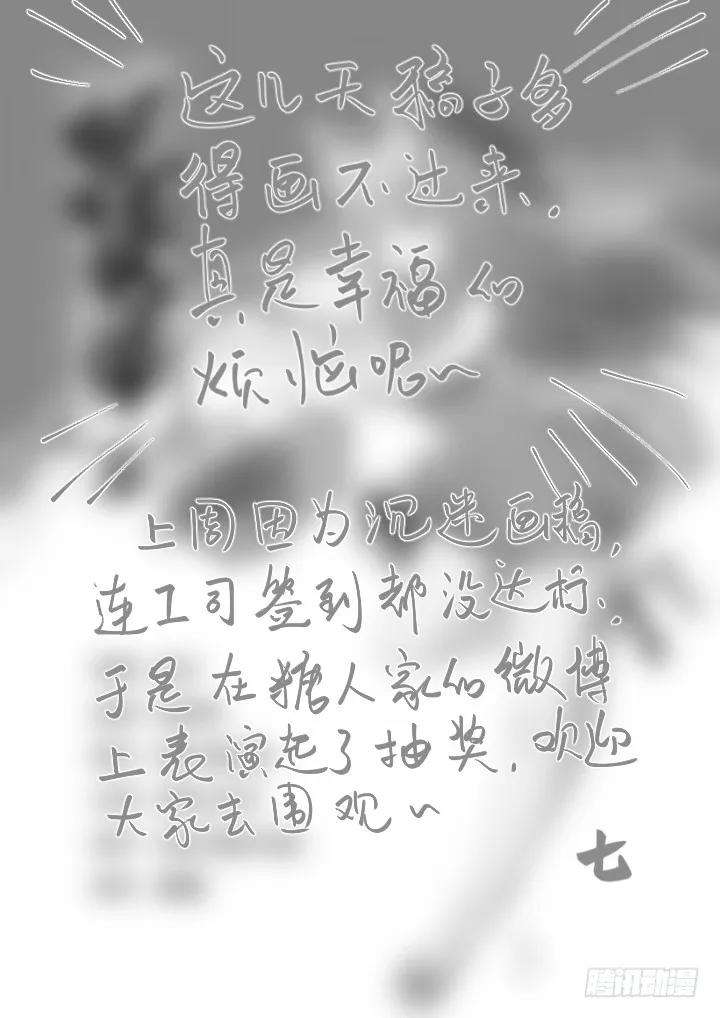 这几天稿子多
得画不过来.
真是幸福的
烦恼呢~
上周因为沉迷画稿,
连工司签到都没达标.
于是在糖人家的微博
上表演起了抽奖.欢迎
大家去围观~
七
腾讯动漫